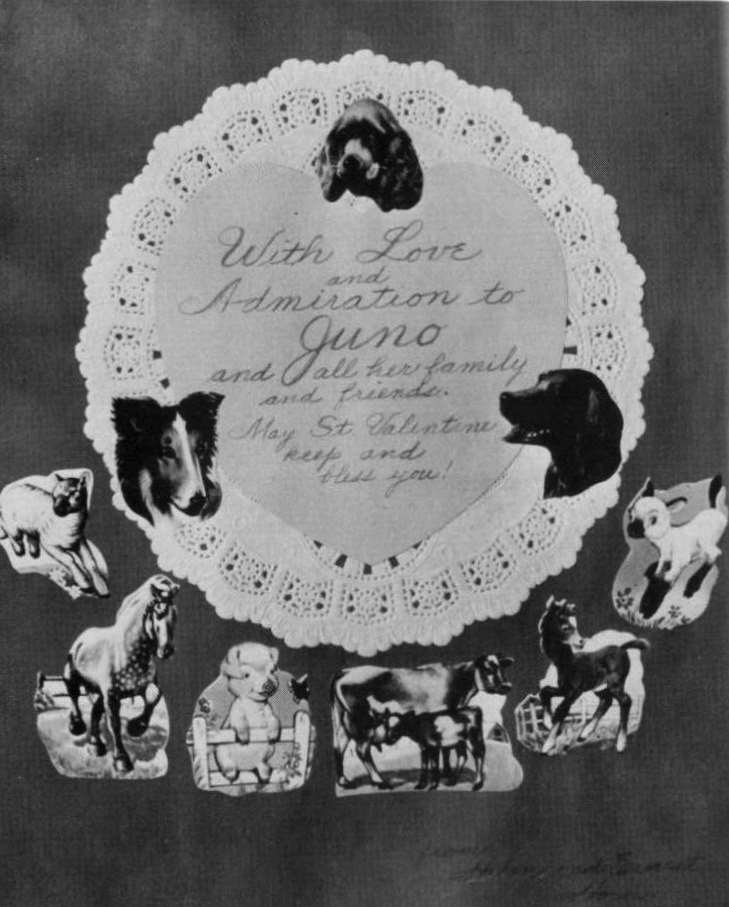 With Love
and
Admiration to
Juno
and all her family
and friends.
May St. Valentine
keep and
bless you!
from
and